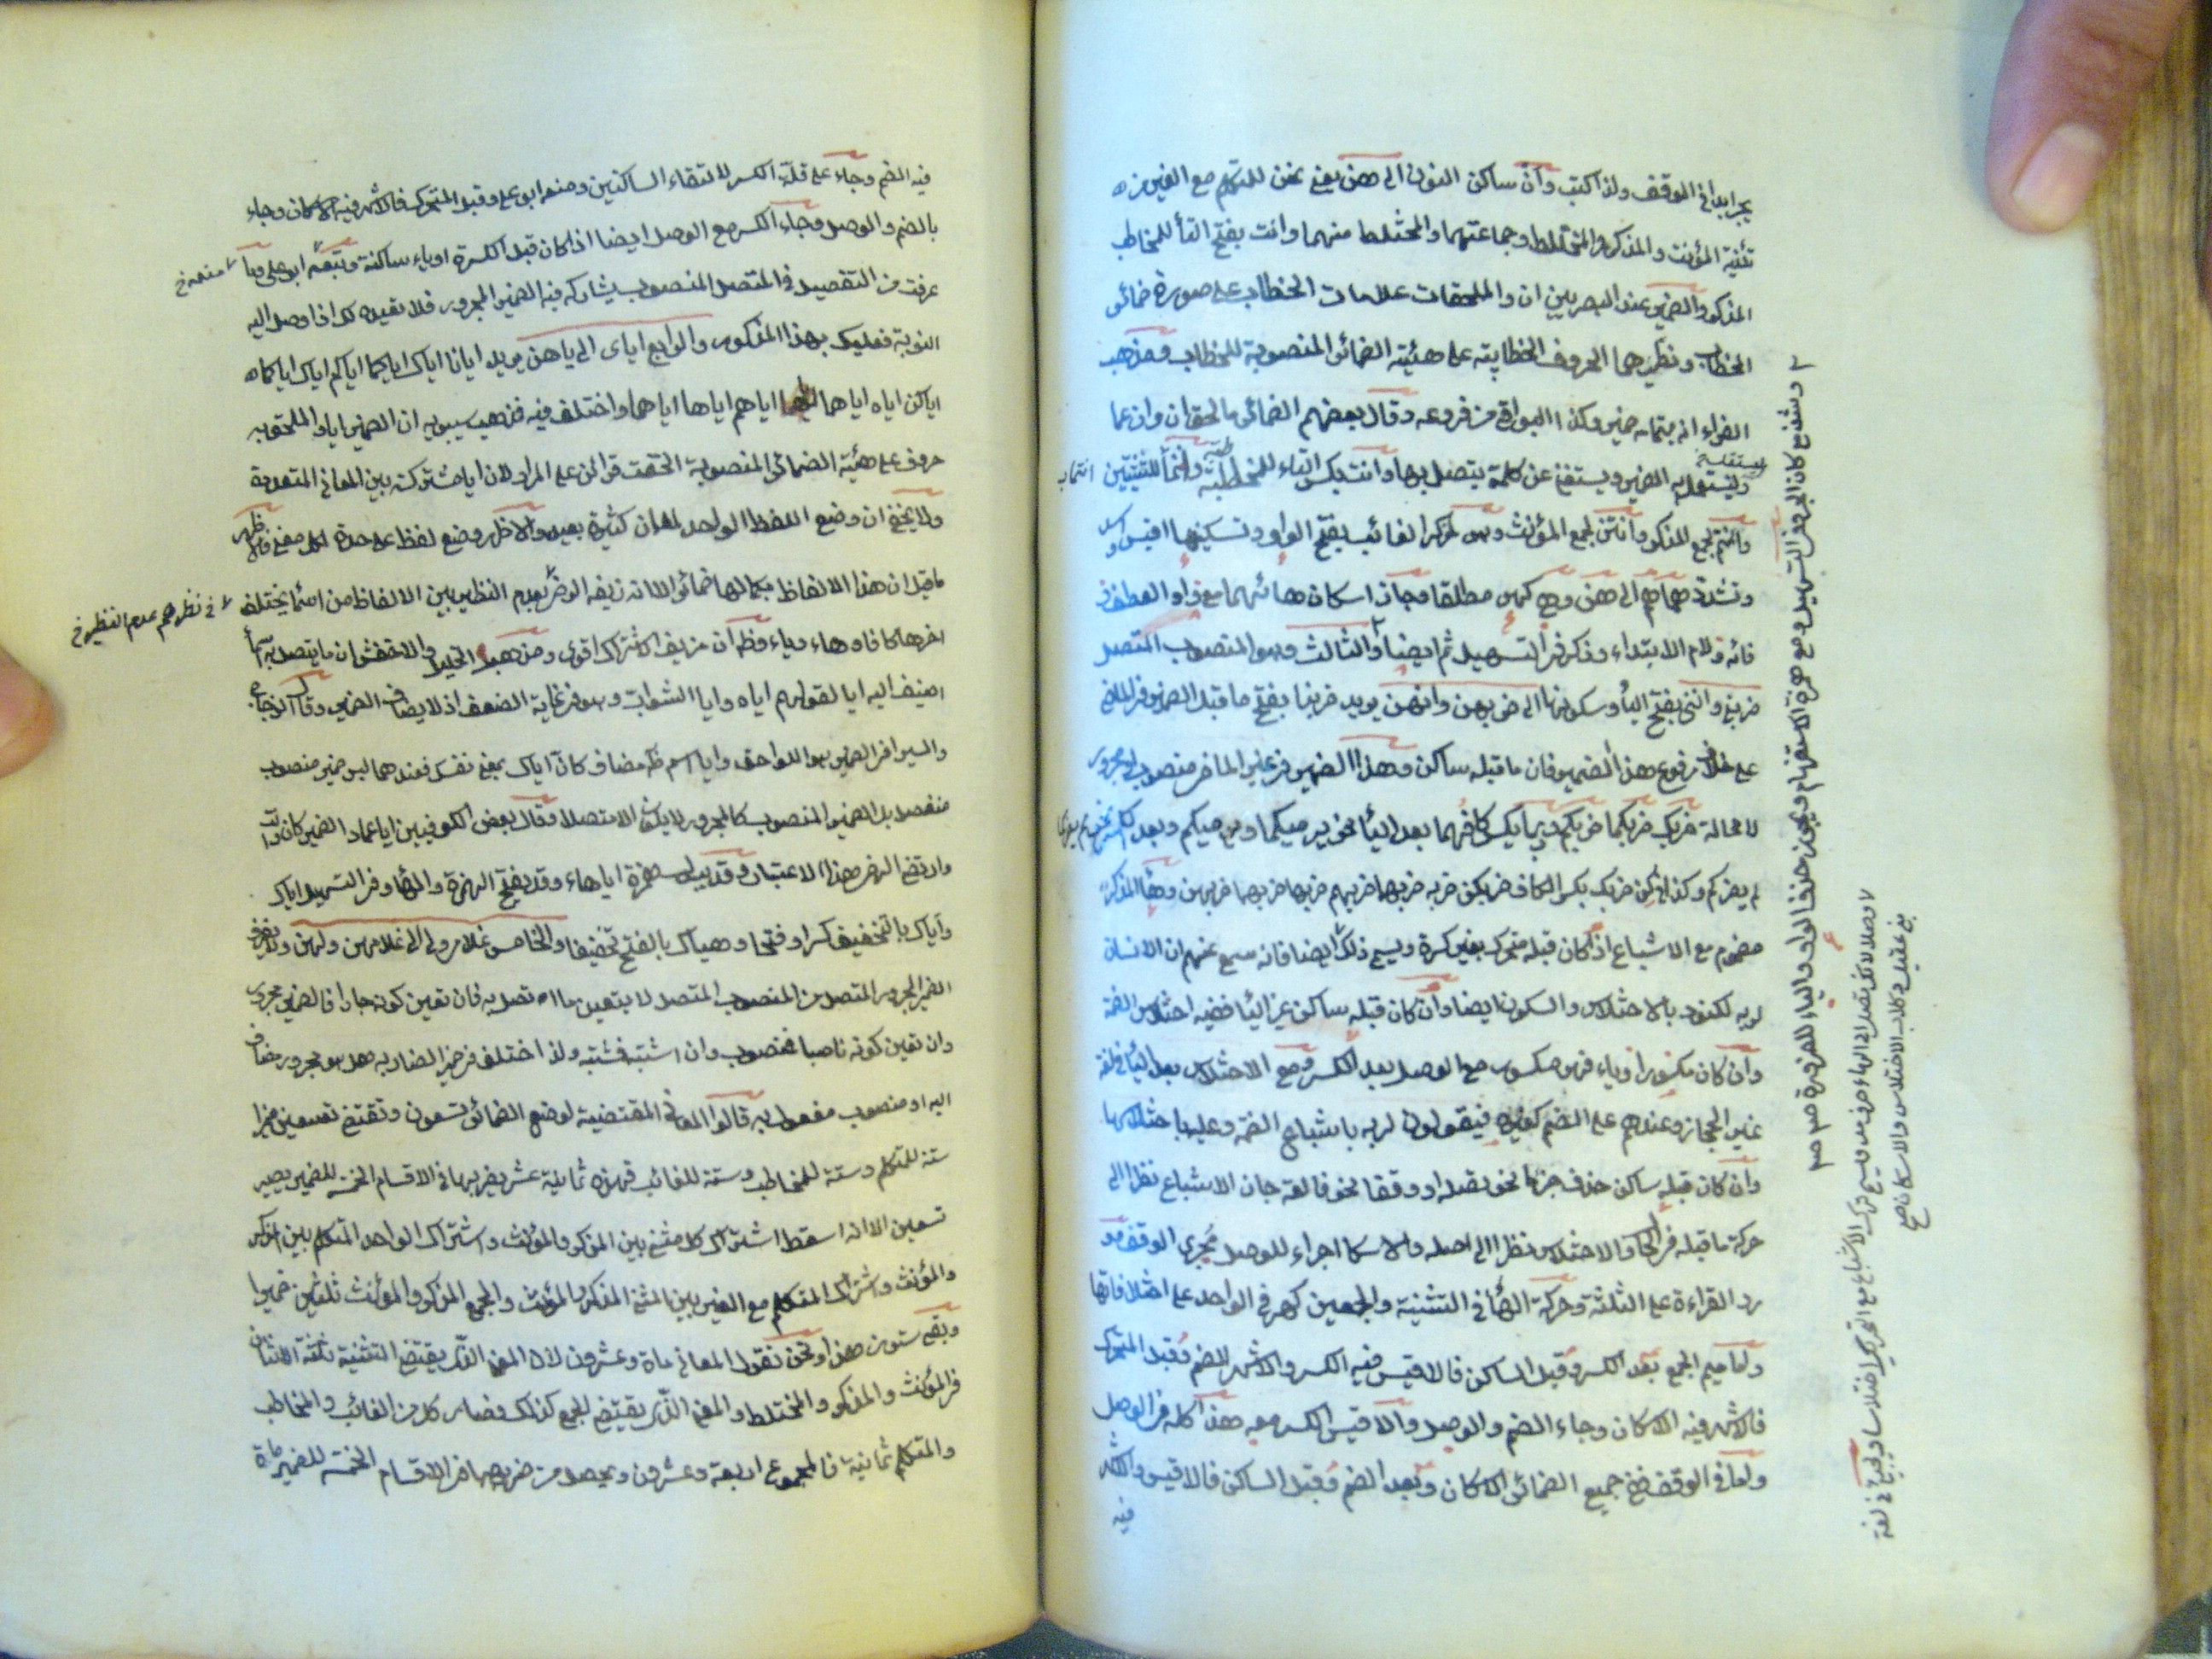 يجر ابدا في الموقف ولذا كتب وان ساكن النون الى هن يعني نحن للمتكلم مع الغير مزه
تثنية المؤنث والمذكر والمختلط وجماعتهما والمختلط منهما وانت بفتح التا للمخاطب
المذكر والضمير عند البصريين ان والملحقات علامات الخطاب على صورة ضمائر
الخطاب ونظيرهما الحروف الخطابية على هيئة الضمائر المنصوبة للخطاب ومذهب
الفراء انه بتمامه ضمير وكذا البواقي من فروعه وقال بعضهم الضمائر ما لحق ان وان عما
وليستقل به الضمير ويستغني عن كلمة يتصل بها وانت بكسر التاء للمخاطبة وانتما للتثنيتين
وانتم لجمع المذكر وانتن لجمع المؤنث وهو لمذكر الغائب بفتح الواو وتسكينها اقيس
وتشدد هما هم الى هن وهي كهو مطلقا وجاز اسكان هائهما مع واو العطف
فائه ولام الابتداء وذكر في التسهيل ثم ايضا والثالث وهو المنصوب المتصل
ضربني وانني بفتح اليا وسكونها الى ضربهن وانهن يريد ضربنا بفتح ما قبل الضمير في الماضي
على خلاف مرفوع هذا الضمير فان ما قبله ساكن وهذا الضمير في غير الماضي منصوب او مجرور
لا محالة ضربك ضربكما ضربكم وربما يكسر كافهما بعد اليا نحو يرميكما ويرميكم وبعد
لم يضركم وكذا ضربك بكسر الكاف ضربكن ضربه ضربهما ضربهم ضربها ضربهما ضربهن وها المذكر
مضموم مع الاشباع اذا كان قبله متحرك بغير كسرة ويسمع ذلك ايضا فانه سمع عنهم ان الانسان
لربه لكنود بالاختلاس والسكون ايضا وان كان قبله ساكن غير اليا ففيه اختلاس الضمة
وان كان مكسورا وياء فهو مكسور مع الوصل بعد الكسر ومع الاختلاس بعد اليا في لغة
غير الحجاز وعندهم على الضم كغيره فيقولون لربه باشباع الضمة وعليه باختلاسها
وان كان قبله ساكن حذف جزما نحو يصله او وقفا نحو فالقه جاز الاشباع نظرا الى
حركة ما قبله في الحال والاختلاس نظرا الى اصله والاسكان اجراء للوصل مجرى الوقف وقد
ورد القراءة على الثلثة وحركة الها في التثنية والجمعين كهي في الواحد على اختلافاتها
واما ميم الجمع بعد الكسر وقبل الساكن فالاقيس فيه الكسر والاشهر الضم وقبل المتحرك
فالاشهر فيه الاسكان وجاء الضم والوصل والاقيس الكسر معه هذا كله في الوصل
واما في الوقف ففي جميع الضمائر الاسكان وبعد الضم وقبل الساكن فالاقيس والاشهر
فيه
فيه الضم وجاء على قلة الكسر لالتقاء الساكنين ومنعه ابو علي وقبل المتحرك فالاشهر فيه الاسكان وجاء
بالضم والوصل وجاء الكسر مع الوصل ايضا اذا كان قبله كسرة او ياء ساكنة ومنعه ابو علي وما
عرفت من التفصيل في المتصل المنصوب يشاركه فيه الضمير المجرور فلا نعيده كل اذا وصل اليه
النوبة فعليك بهذا المذكور والرابع اياي الى ياهن يريد ايانا اياك اياكما اياكم اياك اياكما
اياكن اياه اياهما اياهم اياها اياهما واختلف فيه فذهب سيبويه ان الضمير ايا والملحق به
حروف على هيئة الضمائر المنصوبة الحقت قرائن على المراد لان ايا مشتركة بين المعاني المتعددة
ولا يخفى ان وضع اللفظ الواحد لمعان كثيرة بعيد والاظهر وضع لفظ على حدة لكل معنى
ما قيل ان هذه الالفاظ بكمالها ضمائر الا انه زيفه الرضي بعدم النظير بين الالفاظ من اسما يختلف
اخرها كافا وهاء وياء وظهر ان مزيف الاشتراك اقوى ومذهب الخليل والاخفش ان ما يتصل به اسما
اضيف اليه ايا لقولهم اياه وايا الشواب وهو في غاية الضعف اذ لا يضاف الضمير وقال الزجاج
والسيرافي الضمير هو اللواحق وايا اسم ظاهر مضاف كان اياك بمعنى نفسك فعندهما ليس ضمير منصوب
منفصل بل الضمير المنصوب كالمجرور لا يكون الا متصلا وقال بعض الكوفيين ايا عماد الضمير كان
وارتضى الرضي هذا الاعتبار وقد يبدل همزة اياها هاء وقد يفتح الهمزة والها وفي التسهيل اياك
واياك بالتخفيف كسرا وفتحا وهياك بالفتح تخفيفا والخامس غلامي ولي الى غلامهن ولهن ولا يفرق
الضمير المجرور المتصل من المنصوب المتصل لا يتعين ما اتصل به فان تعين كونه جارا فالضمير مجرور
وان تعين كونه ناصبا فمنصوب وان اشتبه فشتبه ولذا اختلف في ضمير الضاربه هل هو مجرور مضاف
اليه او منصوب مفعول به قالوا المعاني المقتضية لوضع الضمائر تسعون وتقتضي تسعين ضميرا
ستة للمتكلم وستة للمخاطب وستة للغائب فهذه ثمانية عشر يضربها في الاقسام الخمسة للضمير يصير
تسعين الا انه اسقط اشتراك كل مثنى بين المذكر والمؤنث واشتراك الواحد المتكلم بين المذكر
والمؤنث واشتراك المتكلم مع الغير بين المثنى المذكر والمؤنث والجمع المذكر والمؤنث ثلثين ضميرا
وبقى ستون هذا ونحن نقول المعاني ماة وعشرون لان المعنى الذي يقتضي التثنية ثلثة الاثنان
في المؤنث والمذكر والمختلط والمعنى الذي يقتضي الجمع كذلك فصار كل من الغائب والمخاطب
والمتكلم ثمانية فالمجموع اربعة وعشرون ويحصل من ضربها في الاقسام الخمسة للضمير ماة